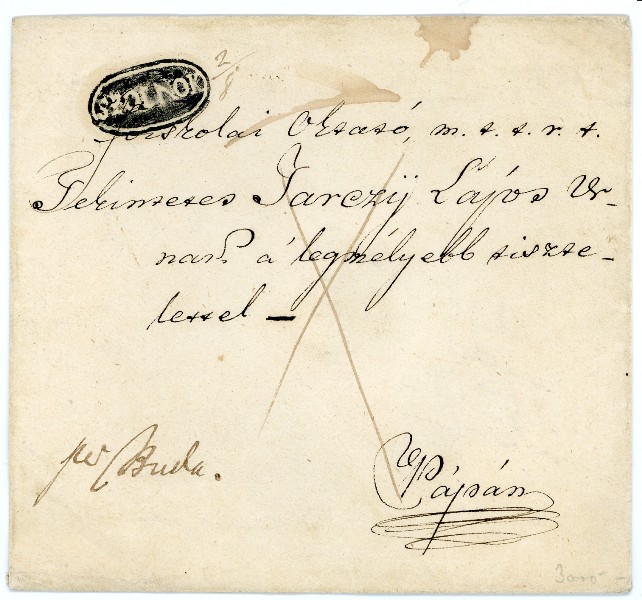 SZOLNOK
2/8
Főiskolai Oktató, m. t. t. r. t.
Tekintetes Tarczÿ Lajos Ur-
nak á legmélyebb tiszte-
lettel –
per Buda.
Pápán